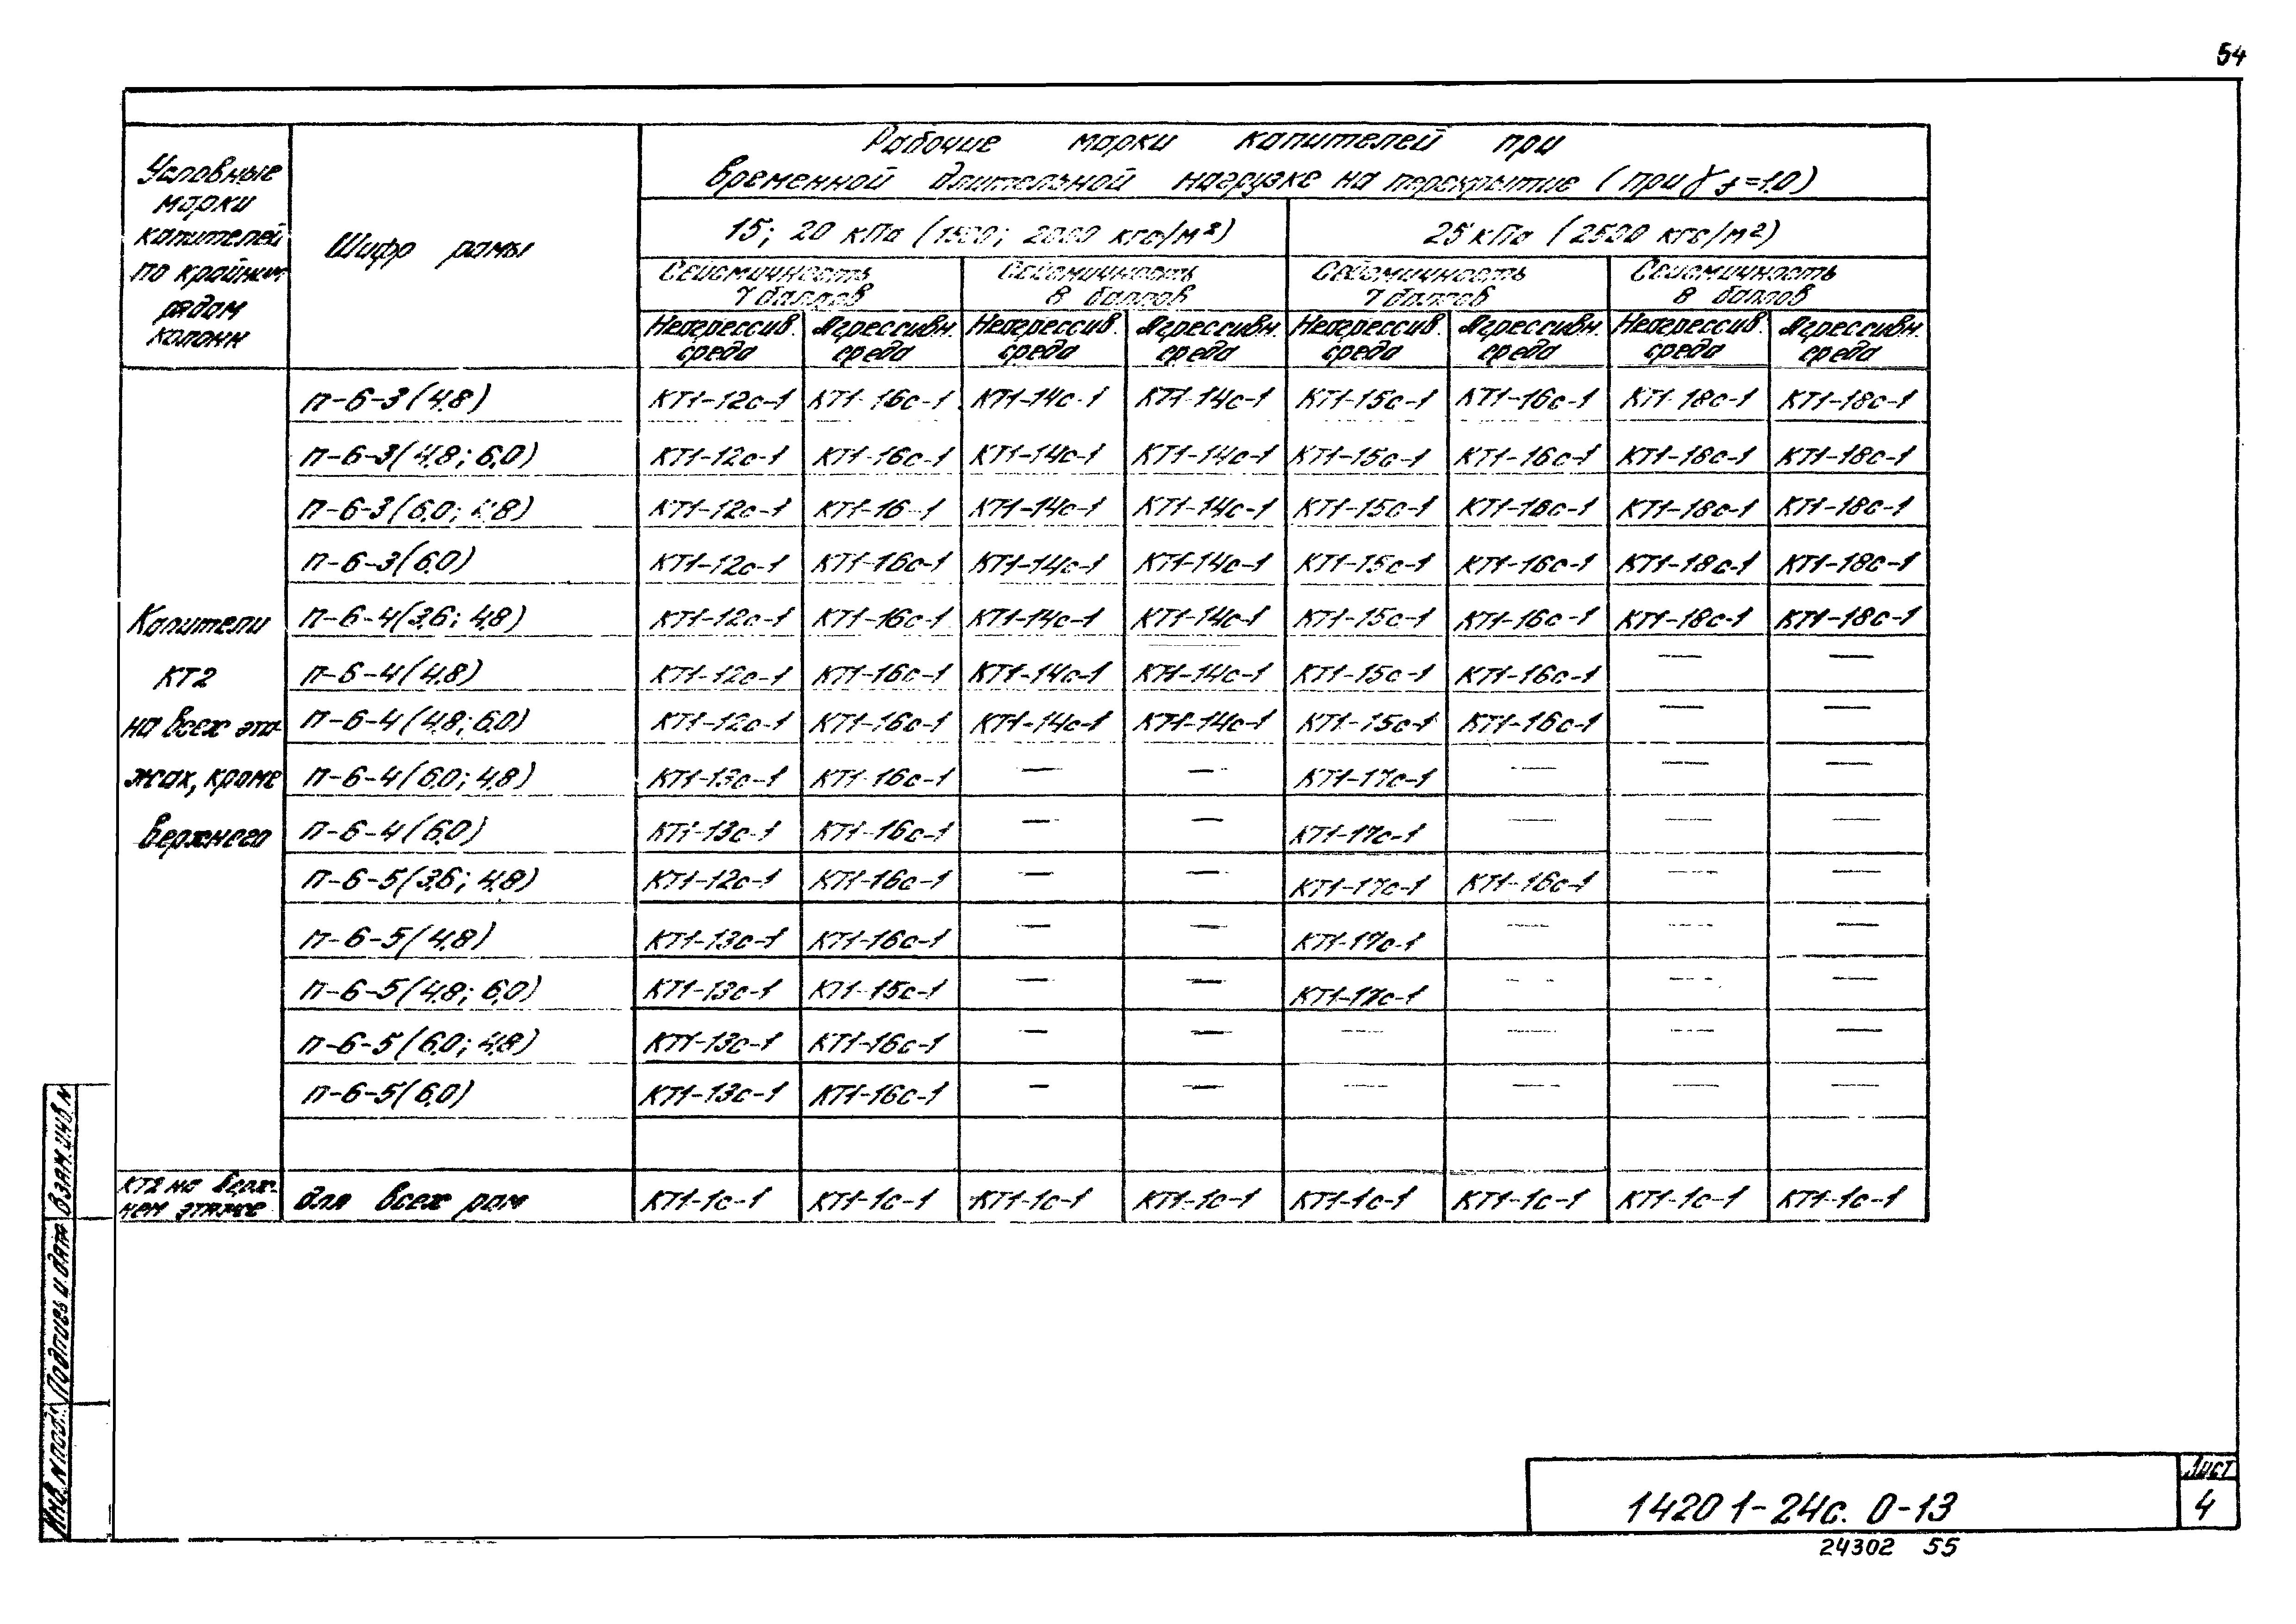 54
Условные
марки
капителей
по крайним
рядам
колонн
Шифр рамы
Рабочие марки капителей при
временной длительной нагрузке на перекрытие (при γf=1.0)
15; 20 кПа (1500; 2000 кгс/м²)
25 кПа (2500 кгс/м²)
Сейсмичность
7 баллов
Сейсмичность
8 баллов
Сейсмичность
7 баллов
Сейсмичность
8 баллов
Неагрессив. среда
Агрессивн. среда
Неагрессив. среда
Агрессивн. среда
Неагрессив. среда
Агрессивн. среда
Неагрессив. среда
Агрессивн. среда
Капители
КТ2
на всех эта-
жах, кроме
верхнего
п-6-3(4.8) КТ1-12с-1 КТ1-16с-1 КТ1-14с-1 КТ1-14с-1 КТ1-15с-1 КТ1-16с-1 КТ1-18с-1 КТ1-18с-1
п-6-3(4.8; 6.0) КТ1-12с-1 КТ1-16с-1 КТ1-14с-1 КТ1-14с-1 КТ1-15с-1 КТ1-16с-1 КТ1-18с-1 КТ1-18с-1
п-6-3(6.0; 4.8) КТ1-12с-1 КТ1-16 -1 КТ1-14с-1 КТ1-14с-1 КТ1-15с-1 КТ1-16с-1 КТ1-18с-1 КТ1-18с-1
п-6-3(6.0) КТ1-12с-1 КТ1-16с-1 КТ1-14с-1 КТ1-14с-1 КТ1-15с-1 КТ1-16с-1 КТ1-18с-1 КТ1-18с-1
п-6-4(3.6; 4.8) КТ1-12с-1 КТ1-16с-1 КТ1-14с-1 КТ1-14с-1 КТ1-15с-1 КТ1-16с-1 КТ1-18с-1 КТ1-18с-1
п-6-4(4.8) КТ1-12с-1 КТ1-16с-1 КТ1-14с-1 КТ1-14с-1 КТ1-15с-1 КТ1-16с-1 — —
п-6-4(4.8; 6.0) КТ1-12с-1 КТ1-16с-1 КТ1-14с-1 КТ1-14с-1 КТ1-15с-1 КТ1-16с-1 — —
п-6-4(6.0; 4.8) КТ1-13с-1 КТ1-16с-1 — — КТ1-17с-1 — — —
п-6-4(6.0) КТ1-13с-1 КТ1-16с-1 — — КТ1-17с-1 — — —
п-6-5(3.6; 4.8) КТ1-12с-1 КТ1-16с-1 — — КТ1-17с-1 КТ1-16с-1 — —
п-6-5(4.8) КТ1-13с-1 КТ1-16с-1 — — КТ1-17с-1 — — —
п-6-5(4.8; 6.0) КТ1-13с-1 КТ1-15с-1 — — КТ1-17с-1 — — —
п-6-5(6.0; 4.8) КТ1-13с-1 КТ1-16с-1 — — — — — —
п-6-5(6.0) КТ1-13с-1 КТ1-16с-1 — — — — — —
КТ2 на верх-
нем этаже
для всех рам КТ1-1с-1 КТ1-1с-1 КТ1-1с-1 КТ1-1с-1 КТ1-1с-1 КТ1-1с-1 КТ1-1с-1 КТ1-1с-1
Инв. N подл. Подпись и дата Взам. инв. N
1420 1-24с. 0-13
Лист
4
24302 55